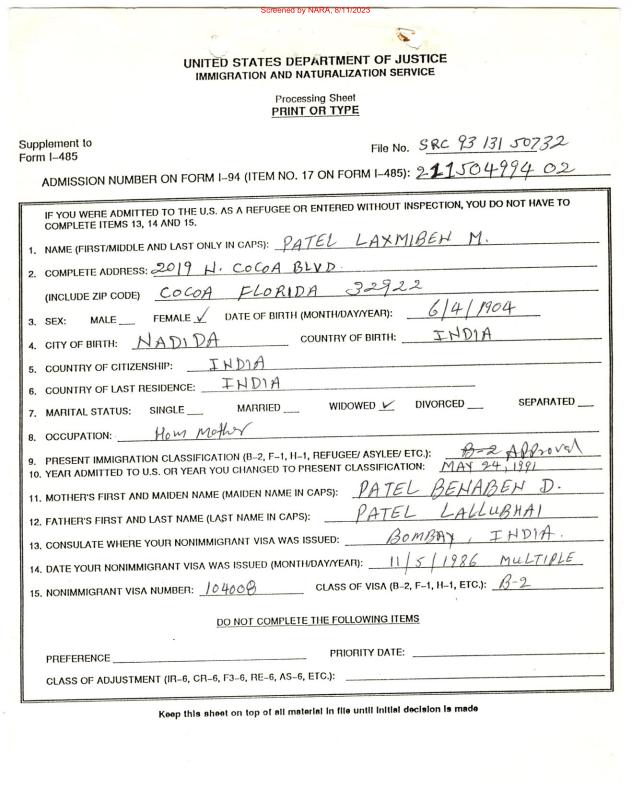 Screened by NARA, 8/11/2023
UNITED STATES DEPARTMENT OF JUSTICE
IMMIGRATION AND NATURALIZATION SERVICE
Processing Sheet
PRINT OR TYPE
Supplement to
Form I-485
File No. SRC 93 131 50732
ADMISSION NUMBER ON FORM I-94 (ITEM NO. 17 ON FORM I-485): 211504994 02
IF YOU WERE ADMITTED TO THE U.S. AS A REFUGEE OR ENTERED WITHOUT INSPECTION, YOU DO NOT HAVE TO
COMPLETE ITEMS 13, 14 AND 15.
1. NAME (FIRST/MIDDLE AND LAST ONLY IN CAPS): PATEL LAXMIBEN M.
2. COMPLETE ADDRESS: 2019 N. COCOA BLVD.
(INCLUDE ZIP CODE) COCOA FLORIDA 32922
3. SEX: MALE ___ FEMALE ✓ DATE OF BIRTH (MONTH/DAY/YEAR): 6/4/1904
4. CITY OF BIRTH: NADIDA COUNTRY OF BIRTH: INDIA
5. COUNTRY OF CITIZENSHIP: INDIA
6. COUNTRY OF LAST RESIDENCE: INDIA
7. MARITAL STATUS: SINGLE ___ MARRIED ___ WIDOWED ✓ DIVORCED ___ SEPARATED ___
8. OCCUPATION: Hous Mother
9. PRESENT IMMIGRATION CLASSIFICATION (B-2, F-1, H-1, REFUGEE/ ASYLEE/ ETC.): B-2 Approval
10. YEAR ADMITTED TO U.S. OR YEAR YOU CHANGED TO PRESENT CLASSIFICATION: MAY 24, 1991
11. MOTHER'S FIRST AND MAIDEN NAME (MAIDEN NAME IN CAPS): PATEL BENABEN D.
12. FATHER'S FIRST AND LAST NAME (LAST NAME IN CAPS): PATEL LALLUBHAI
13. CONSULATE WHERE YOUR NONIMMIGRANT VISA WAS ISSUED: BOMBAY, INDIA.
14. DATE YOUR NONIMMIGRANT VISA WAS ISSUED (MONTH/DAY/YEAR): 11/5/1986 MULTIPLE
15. NONIMMIGRANT VISA NUMBER: 104008 CLASS OF VISA (B-2, F-1, H-1, ETC.): B-2
DO NOT COMPLETE THE FOLLOWING ITEMS
PREFERENCE ___ PRIORITY DATE: ___
CLASS OF ADJUSTMENT (IR-6, CR-6, F3-6, RE-6, AS-6, ETC.): ___
Keep this sheet on top of all material in file until initial decision is made